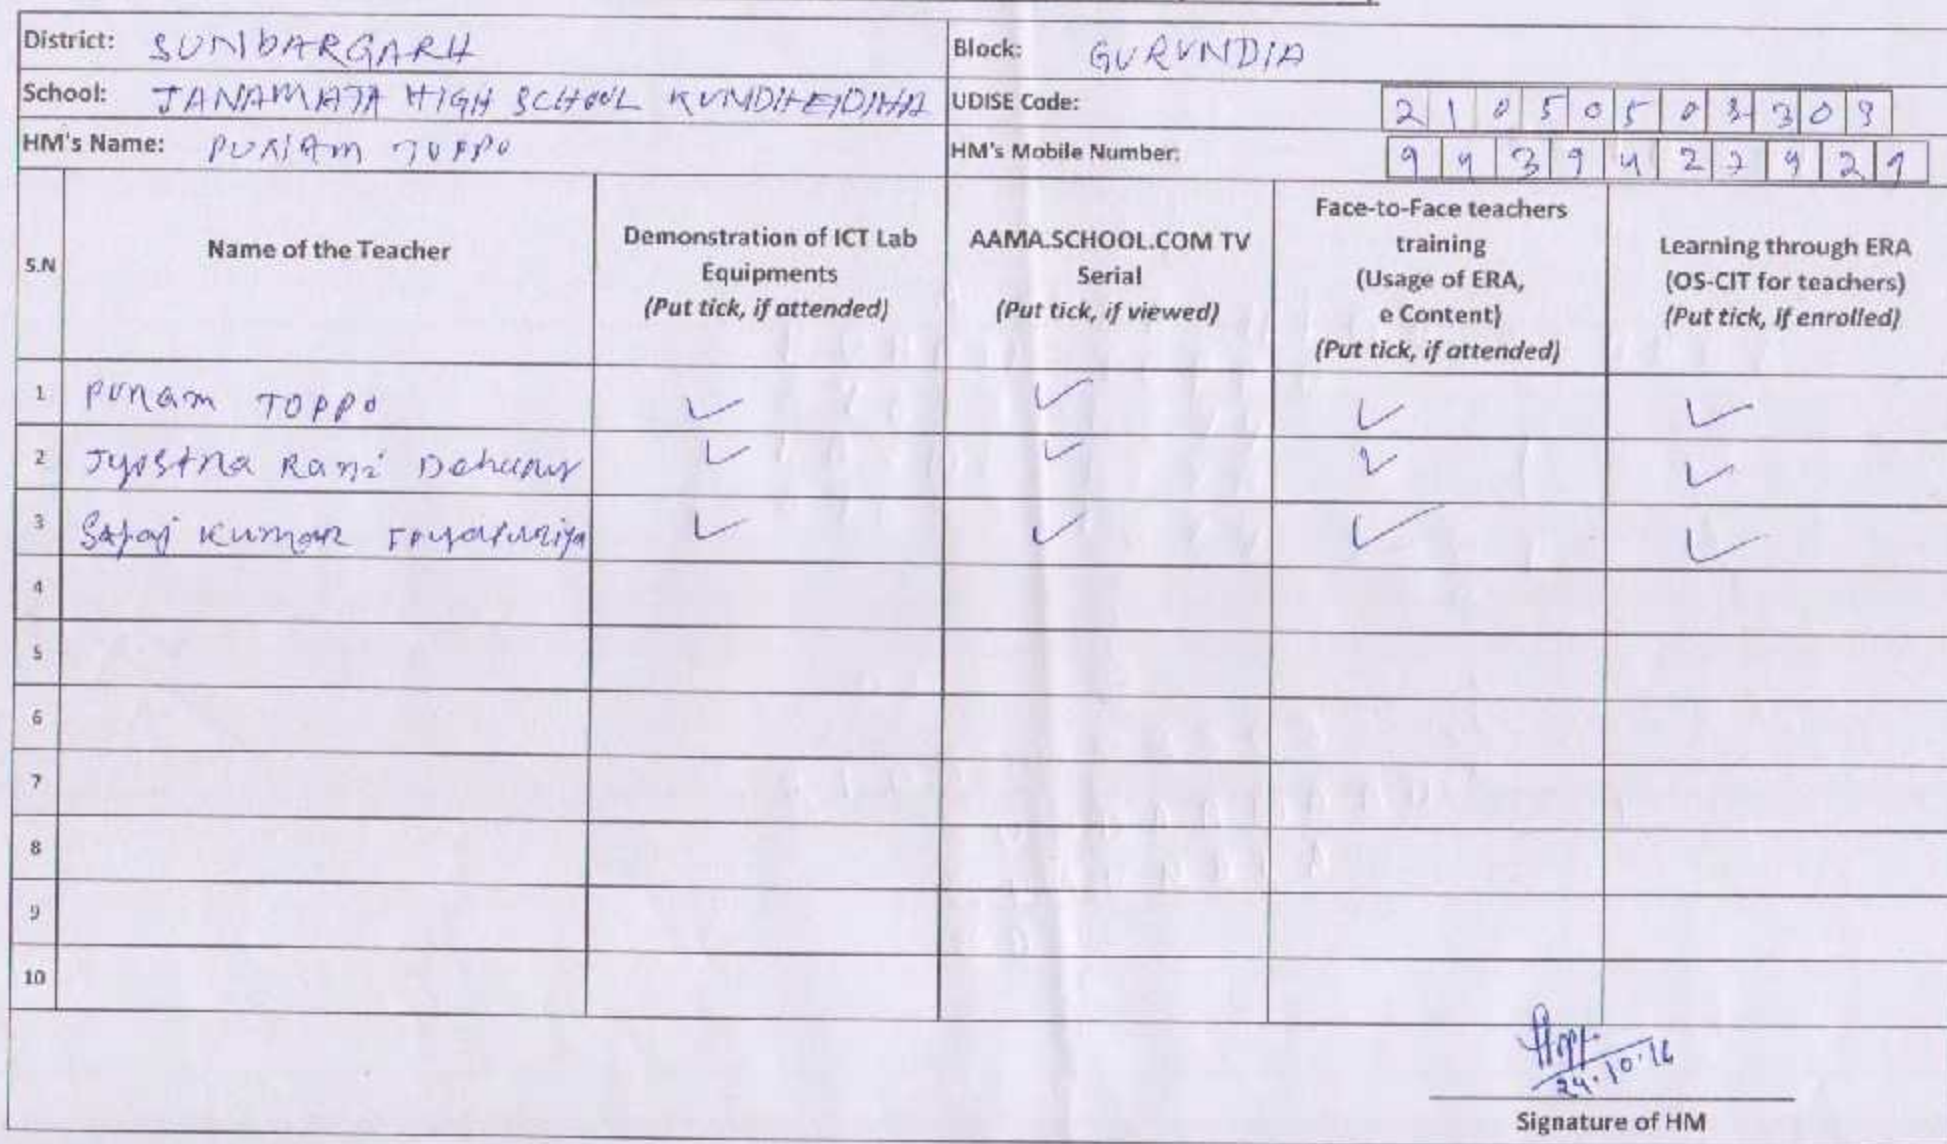 District: SUNDARGARH
Block: GURUNDIA
School: JANAMATA HIGH SCHOOL KUNDHEIDIHA
UDISE Code: 21050503309
HM's Name: PUNAM TOPPO
HM's Mobile Number:
S.N
Name of the Teacher
Demonstration of ICT Lab
Equipments
(Put tick, if attended)
AAMA.SCHOOL.COM TV
Serial
(Put tick, if viewed)
Face-to-Face teachers
training
(Usage of ERA,
e Content)
(Put tick, if attended)
Learning through ERA
(OS-CIT for teachers)
(Put tick, If enrolled)
1 PUNam TOPPO ✓ ✓ ✓ ✓
2 Jyostna Rani ✓ ✓ ✓ ✓
3 Kumar ✓ ✓ ✓ ✓
4
5
6
7
8
9
10
24.10.16
Signature of HM